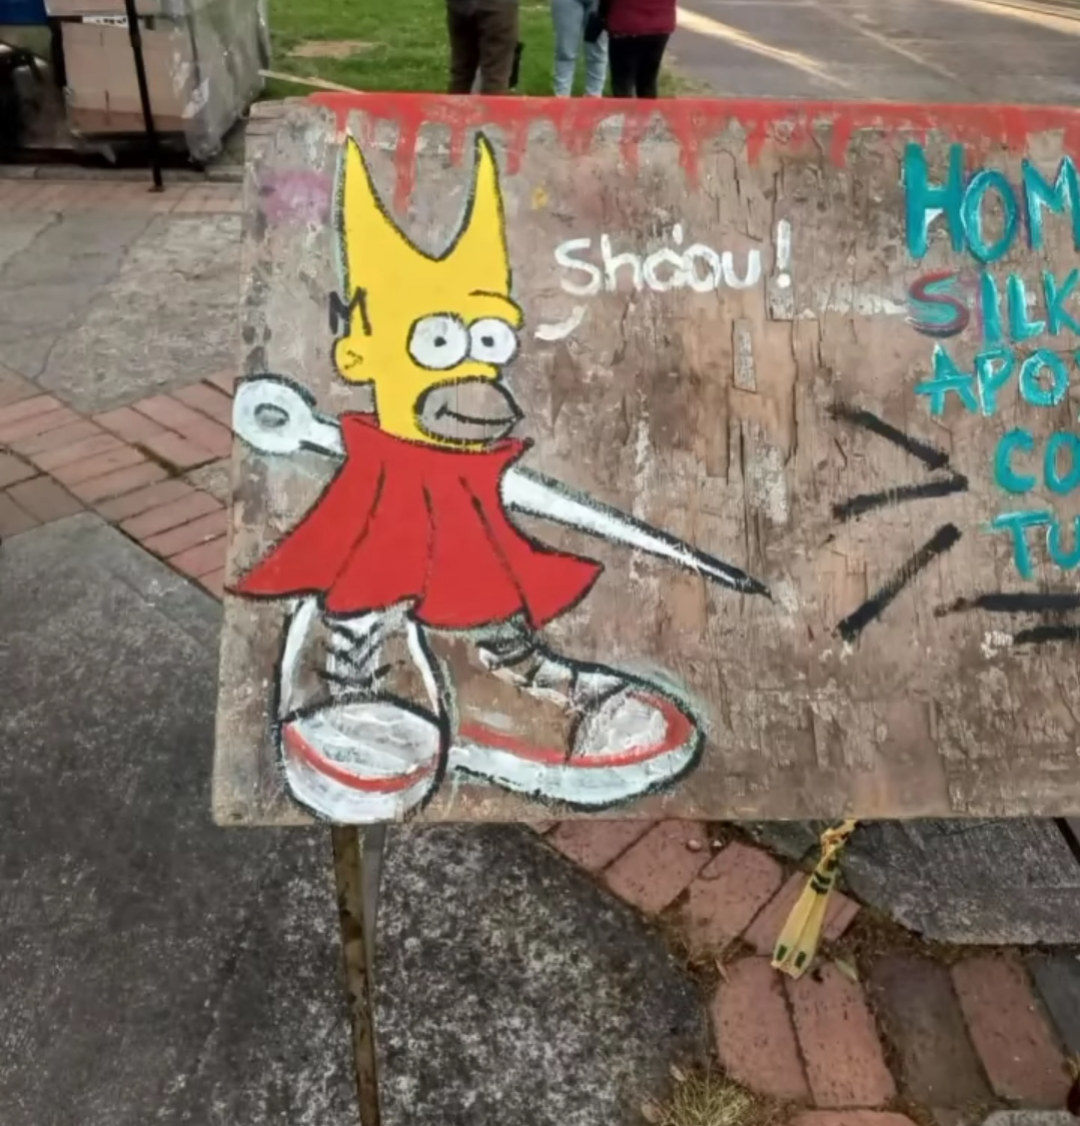 Shdou!
M
HOM
SILK
APO
CO
TU